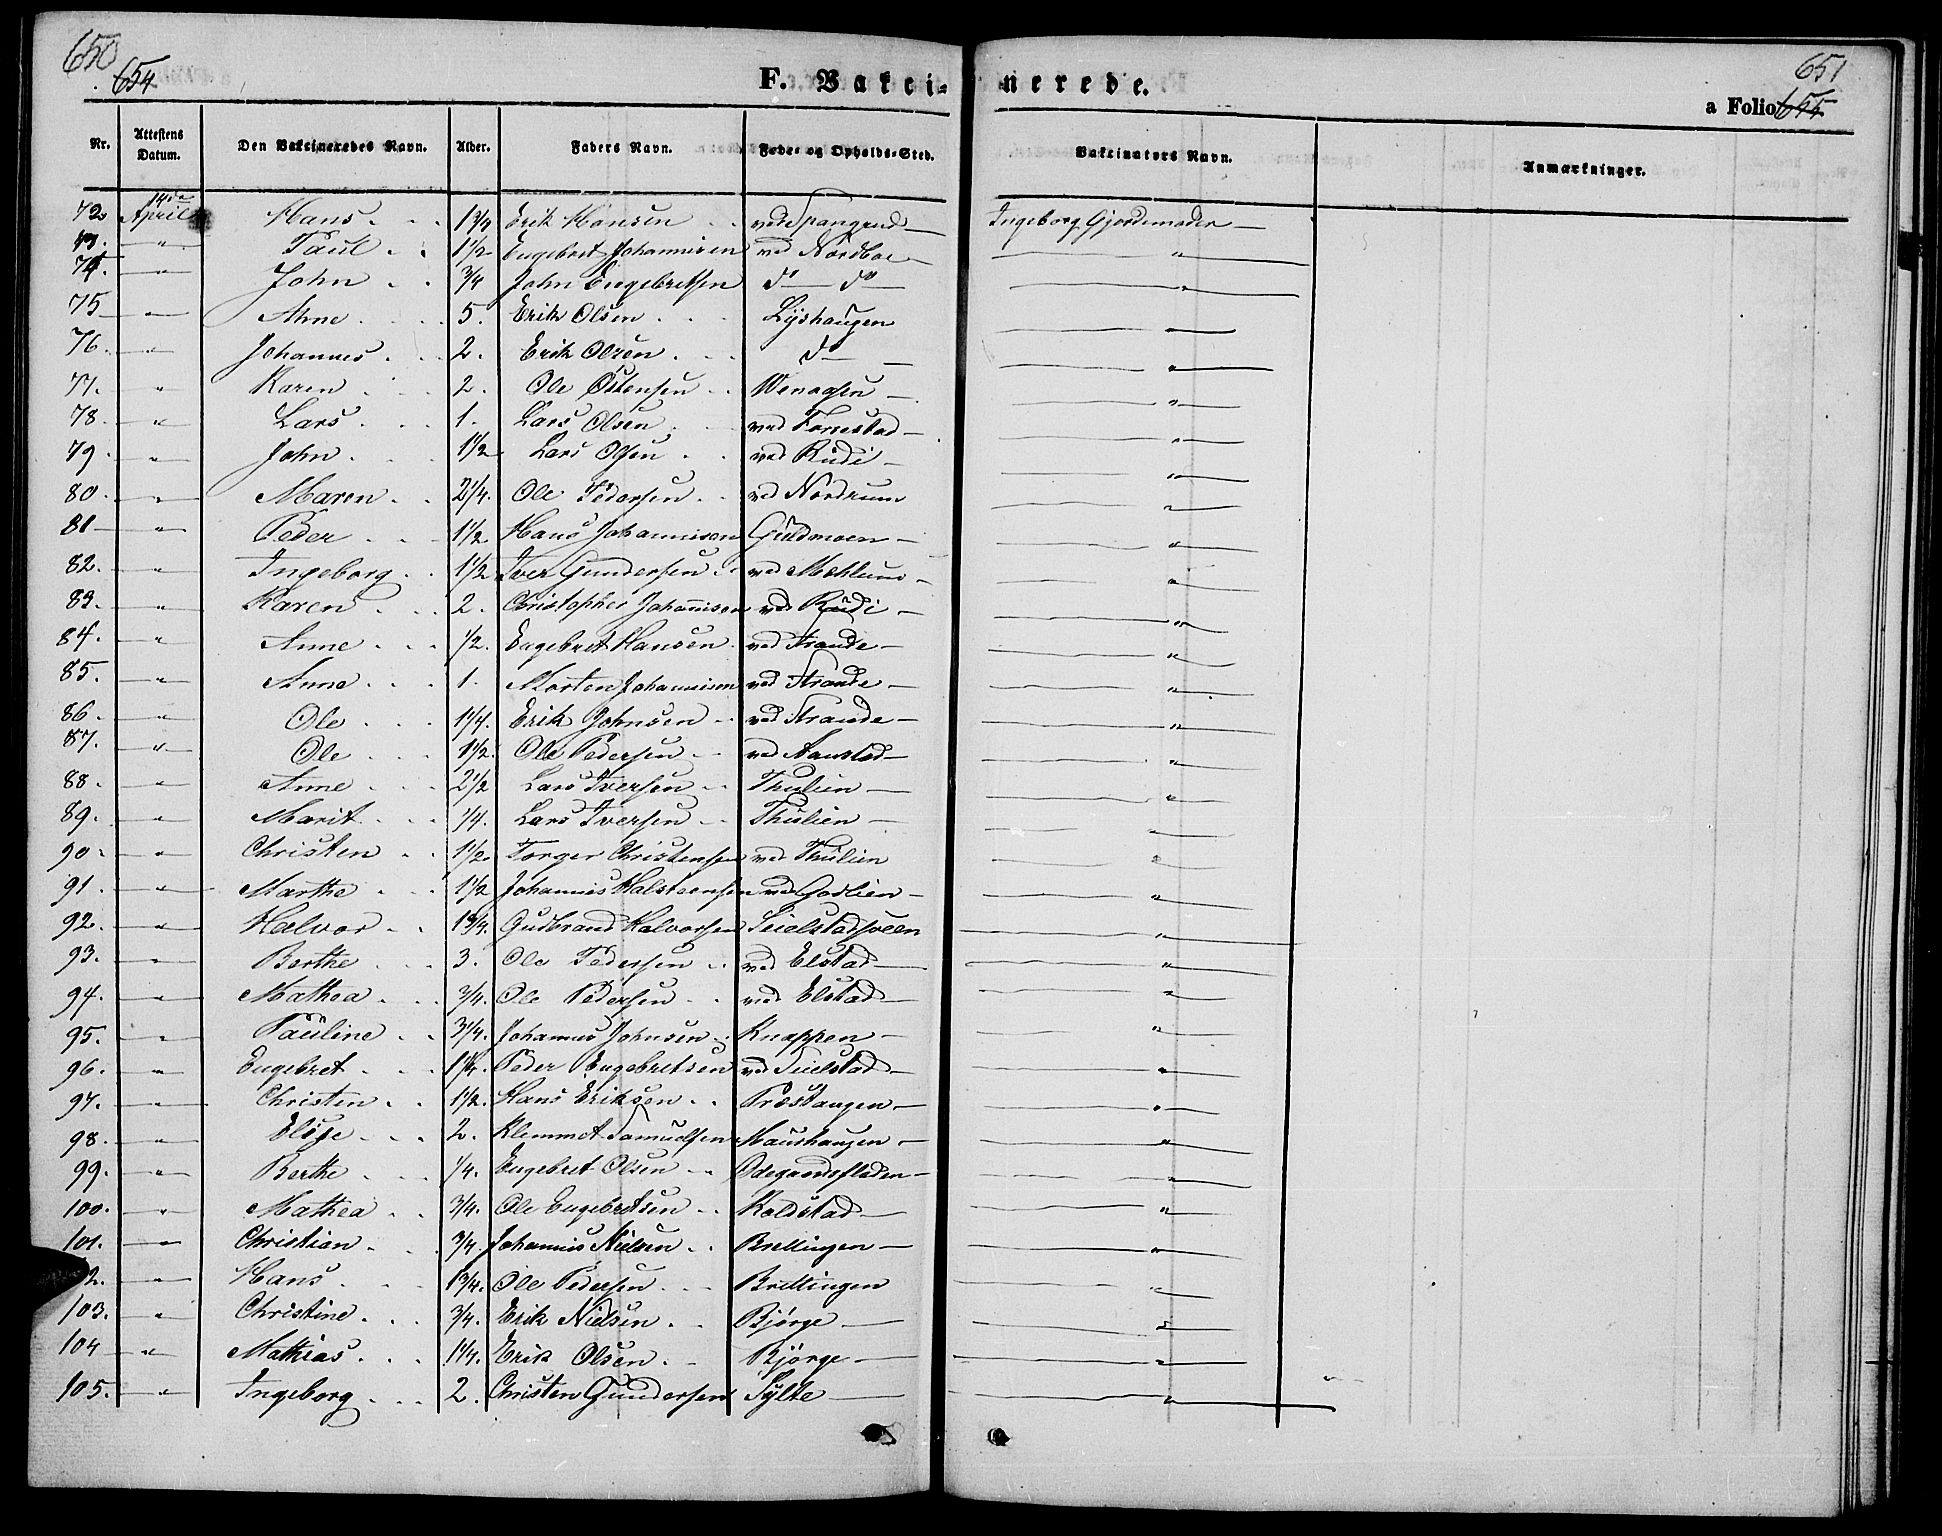 650
654
F. Vakci-nerede.
651
a Folio 655
Nr. Attestens Datum. Den Vakcineredes Navn. Alder. Faders Navn. Føde- og Opholds-Sted. Vakcinators Navn. Anmærkninger.
72. 14de April Hans 1 3/4 Erik Hansen ved Spangrud Ingeborg Gjordemoder
73. " Paul 1 1/2 Engebret Johannesen ved Nordboe "
74. " John 3/4 John Engebretsen do do "
75 " Anne 5. Erik Olsen Lyshaugen "
76. " Johannes 2. Erik Olsen do "
77. " Karen 2. Ole Østensen "
78. " Lars 1. Lars Olsen ved "
79. " John 1 1/2 Lars Olsen ved Rudi "
80. " Maren 2 1/4. Ole Pedersen ved Nordrum "
81 " Peder 1 1/2 Hans Johannesen Guldmoen "
82. " Ingeborg 1 1/2 Iver Gundersen ved Mæhlum "
83. " Karen 2. Christopher Johannesen ved Rudi "
84. " Anne 1/2. Engebret Hansen ved Strande "
85. " Anne 1. Morten Johannesen ved Strande "
86. " Ole 1 1/4. Erik Johnsen ved Strande "
87. " Ole 1 1/2. Ole Pedersen ved "
88. " Anne 2 1/2 Lars Iversen Thulien "
89. " Marit 1/4. Lars Iversen Thulien "
90. " Christen 1 1/2. Torger Christensen ved Thulien "
91. " Marthe 1 1/2 Johannes Halsteensen ved Godlien "
92. " Halvor 1 3/4. Gudbrand Halvorsen Seielstadsveen "
93. " Berthe 3. Ole Pedersen ved Elstad "
94. " Mathea 3/4. Ole Pedersen ved Elstad "
95. " Pauline 3 1/4. Johannes Johnsen Knappen "
96. " Engebret 1 1/4. Peder Engebretsen ved Seielstad "
97. " Christen 1 1/2. Hans Eriksen Præstangen "
98. " Elise 2. Klemmet Samuelsen Haushaugen "
99. " Berthe 1/4. Engebret Olsen Odegaardsfladen "
100. " Mathea 3/4. Ole Engebretsen Koldstad "
101. " Christian 3/4. Johannes Nielsen Brettingen "
2. " Hans 1 3/4. Ole Pedersen Brettingen "
103. " Christine 3/4. Erik Nielsen Bjørge "
104 " Mathias 1 1/4. Erik Olsen Bjørge "
105. " Ingeborg 2. Christen Gundersen Sylte "